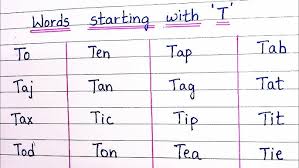 Words starting with 'T'
To Ten Tap Tab
Taj Tan Tag Tat
Tax Tic Tip Tic
Tod Ton Tea Tie